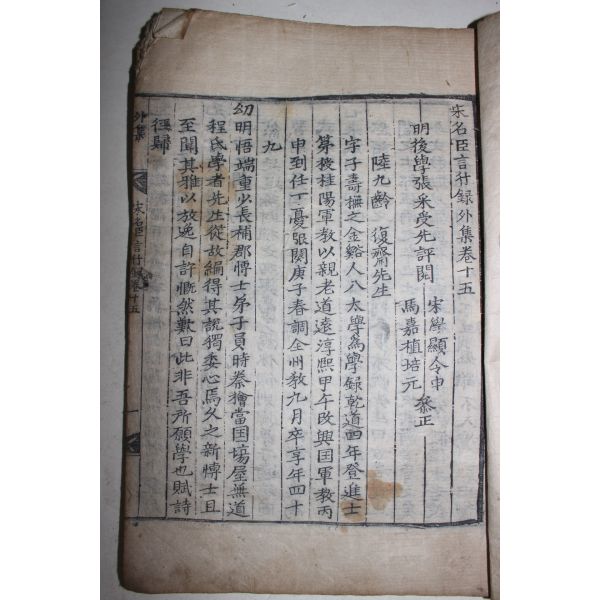 宋名臣言行録外集卷十五
明後學張采受先評閱
宋學顯令申
馬嘉植培元
叅正
陸九齡 復齋先生
字子壽撫之金谿人入太學爲學録乾道四年登進士
第授桂陽軍教以親老道遠淳熙甲午改興囯軍教丙
申到任丁憂張闕庚子春調全州教九月卒享年四十
九
幼明悟端重少長補郡博士弟子員時秦檜當囯塲屋無道
程氏學者先生從故編得其說獨委心焉久之新博士且
至聞其雅以放逸自許慨然歎曰此非吾所願學也賦詩
徑歸
外集
宋名臣言行録卷十五
一